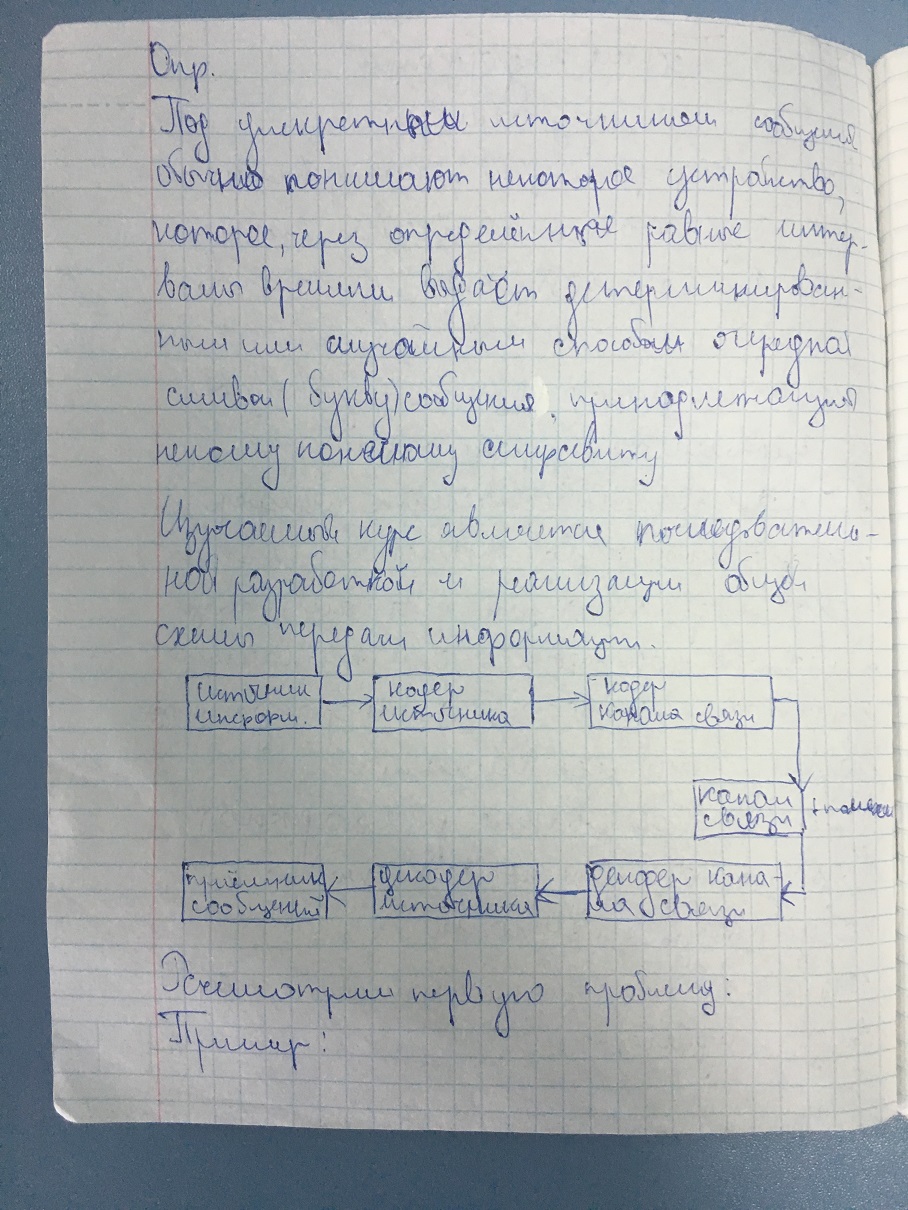 Опр.
Под дискретным источником сообщения
обычно понимают некоторое устройство,
которое, через определённые равные интер-
валы времени выдаёт детерминирован-
ным или случайным способом очередной
символ (букву) сообщения, принадлежащий
некому конечному алфавиту
Изучаемый курс является последователь-
ной разработкой и реализации общей
схемы передачи информации.
источник
информ.
кодер
источника
кодер
канала связи
канал
связи
+ помехи
декодер кана-
ла связи
декодер
источника
приёмник
сообщений
Рассмотрим первую проблему:
Пример: